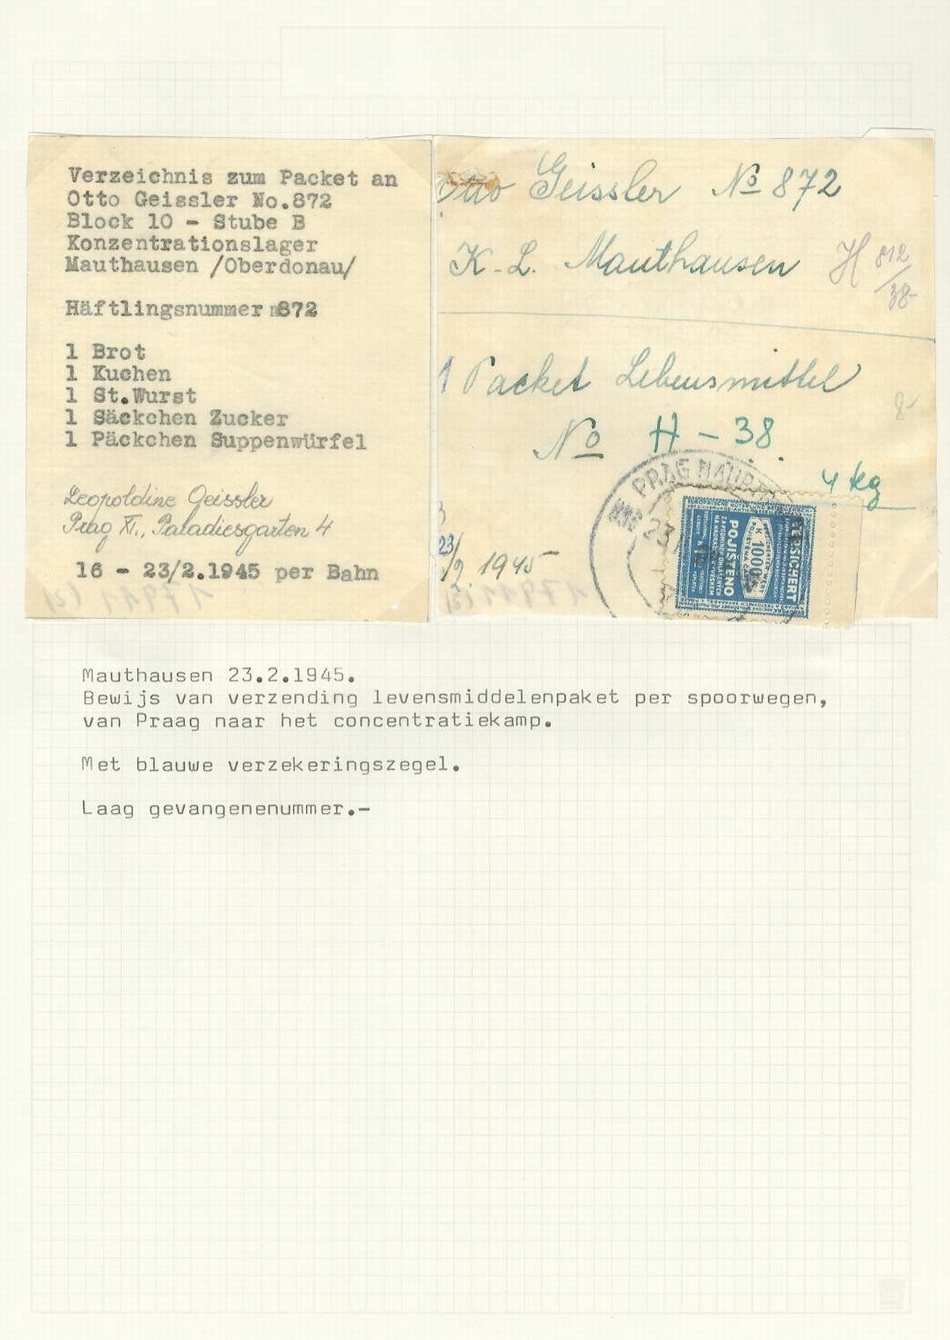 Verzeichnis zum Packet an
Otto Geissler No.872
Block 10 - Stube B
Konzentrationslager
Mauthausen /Oberdonau/
Häftlingsnummer 872
1 Brot
1 Kuchen
1 St.Wurst
1 Säckchen Zucker
1 Päckchen Suppenwürfel
Leopoldine Geissler
Prag XI., Paladiesgarten 4
16 - 23/2.1945 per Bahn
Otto Geissler No 872
K.L. Mauthausen
H 812/38-
1 Packet Lebensmittel
8-
No H - 38
4 kg
23/2. 1945
PRAG HAUP
23
VERSICHERT
K 10000
POJIŠTĚNO
Mauthausen 23.2.1945.
Bewijs van verzending levensmiddelenpaket per spoorwegen,
van Praag naar het concentratiekamp.
Met blauwe verzekeringszegel.
Laag gevangenenummer.-